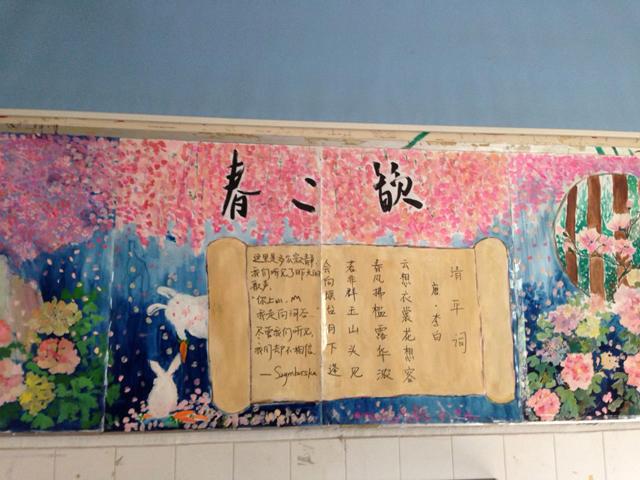 春
清平词
唐·李白
云想衣裳花想容
春风拂槛露华浓
若非群玉山头见
会向瑶台月下逢
这里是多么寂静，
我们听见了昨天的
歌声：
"你上山，
我走向河谷…
尽管我们听见，
我们却不相信.
— Szymborska